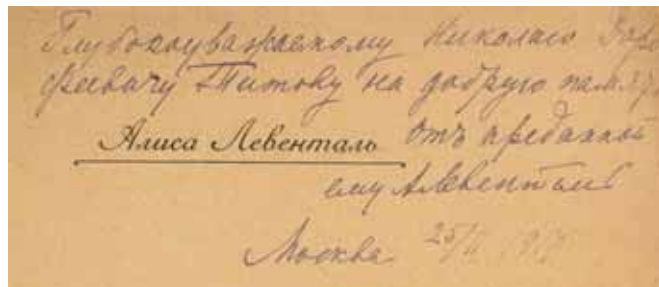 Глубокоуважаемому Николаю Доро
феевичу Титову на добрую память
Алиса Левенталь отъ преданной
ему АЛевенталь
Москва 25/II